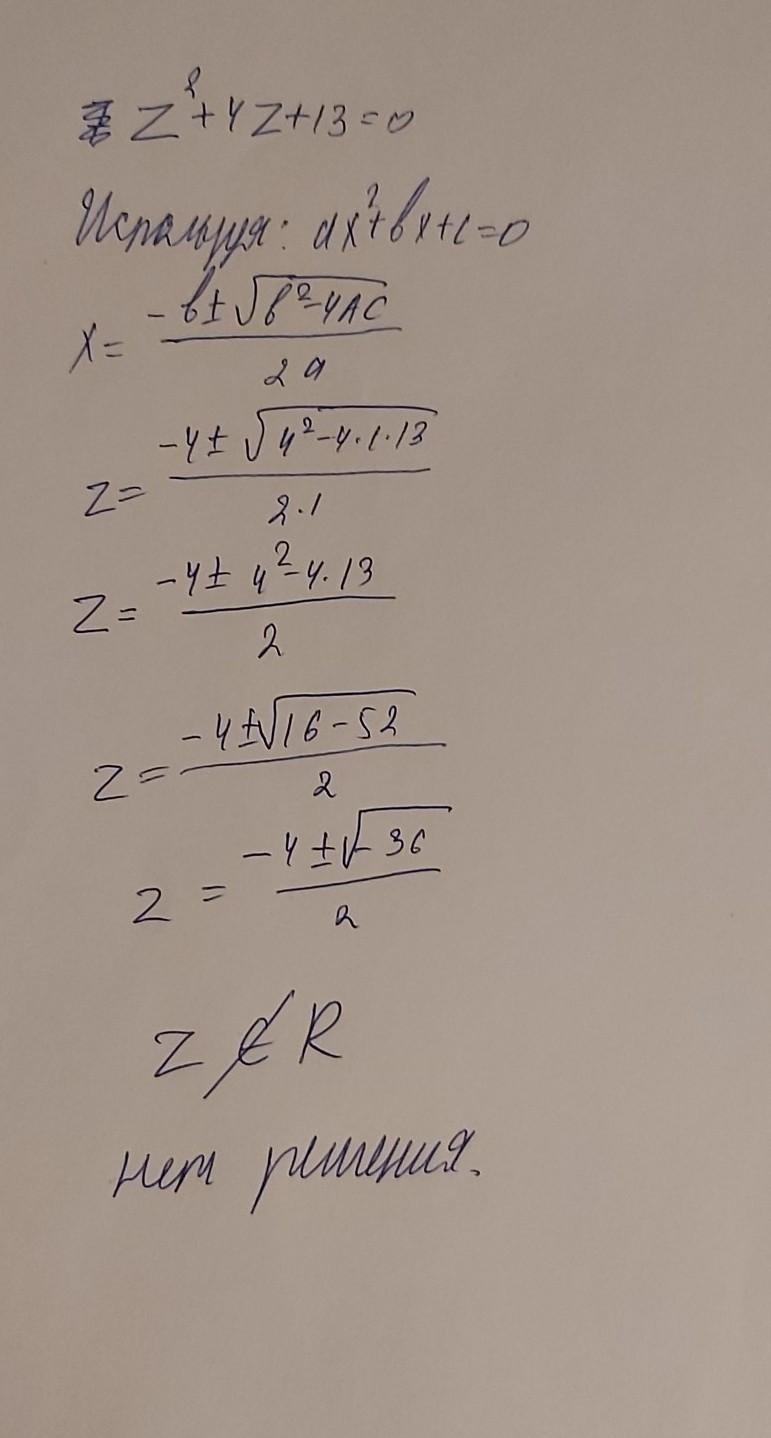 z²+4z+13=0
Используя: ax²+bx+c=0
x= -b±√(b²-4AC) / 2a
z= -4±√(4²-4·1·13) / 2·1
z= -4± 4²-4·13 / 2
z= -4±√(16-52) / 2
z = -4±√(-36) / 2
z ∉ R
нет решения.